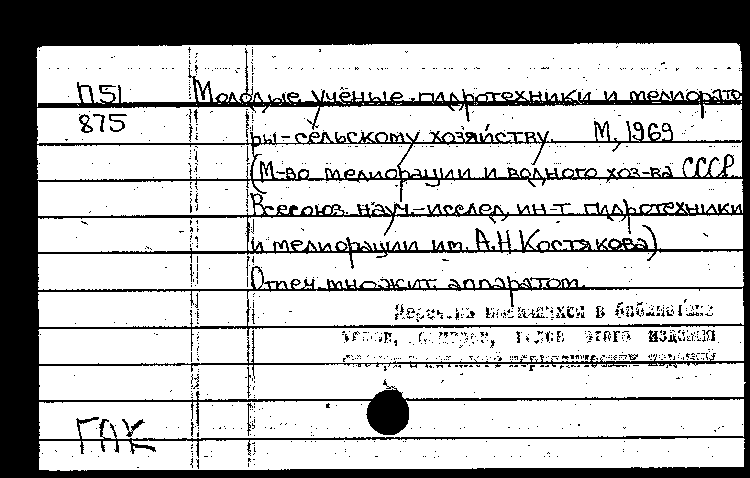 П51
875
Молодые учёные-гидротехники и мелиорато
ры-сельскому хозяйству. М, 1969
(М-во мелиорации и водного хоз-ва СССР.
Всесоюз. науч.-исслед. ин-т. гидротехники
и мелиорации им. А.Н.Костякова)
Отпеч. множит. аппаратом.
имеющихся в библиотеке
томов, номеров, годов этого издания
периодических изданий
ГАК